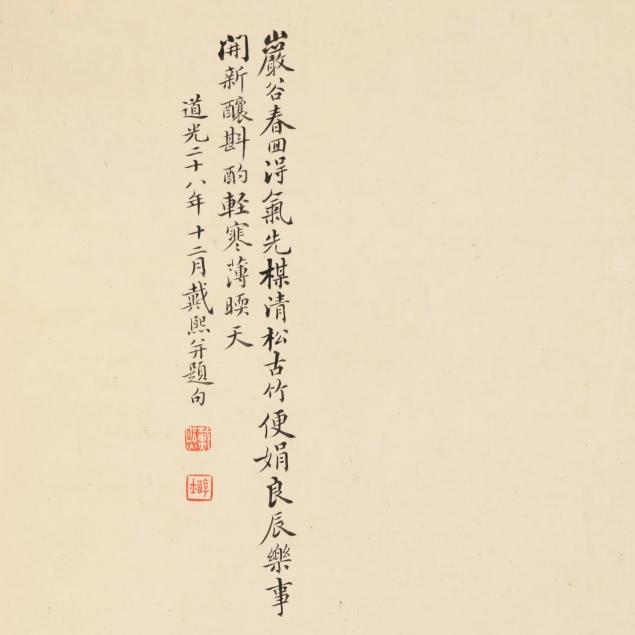 巖谷春回淂氣先楳清松古竹便娟良辰樂事
開新釀斟酌輕寒薄暝天
道光二十八年十二月戴熙并題句
戴熙
醇士